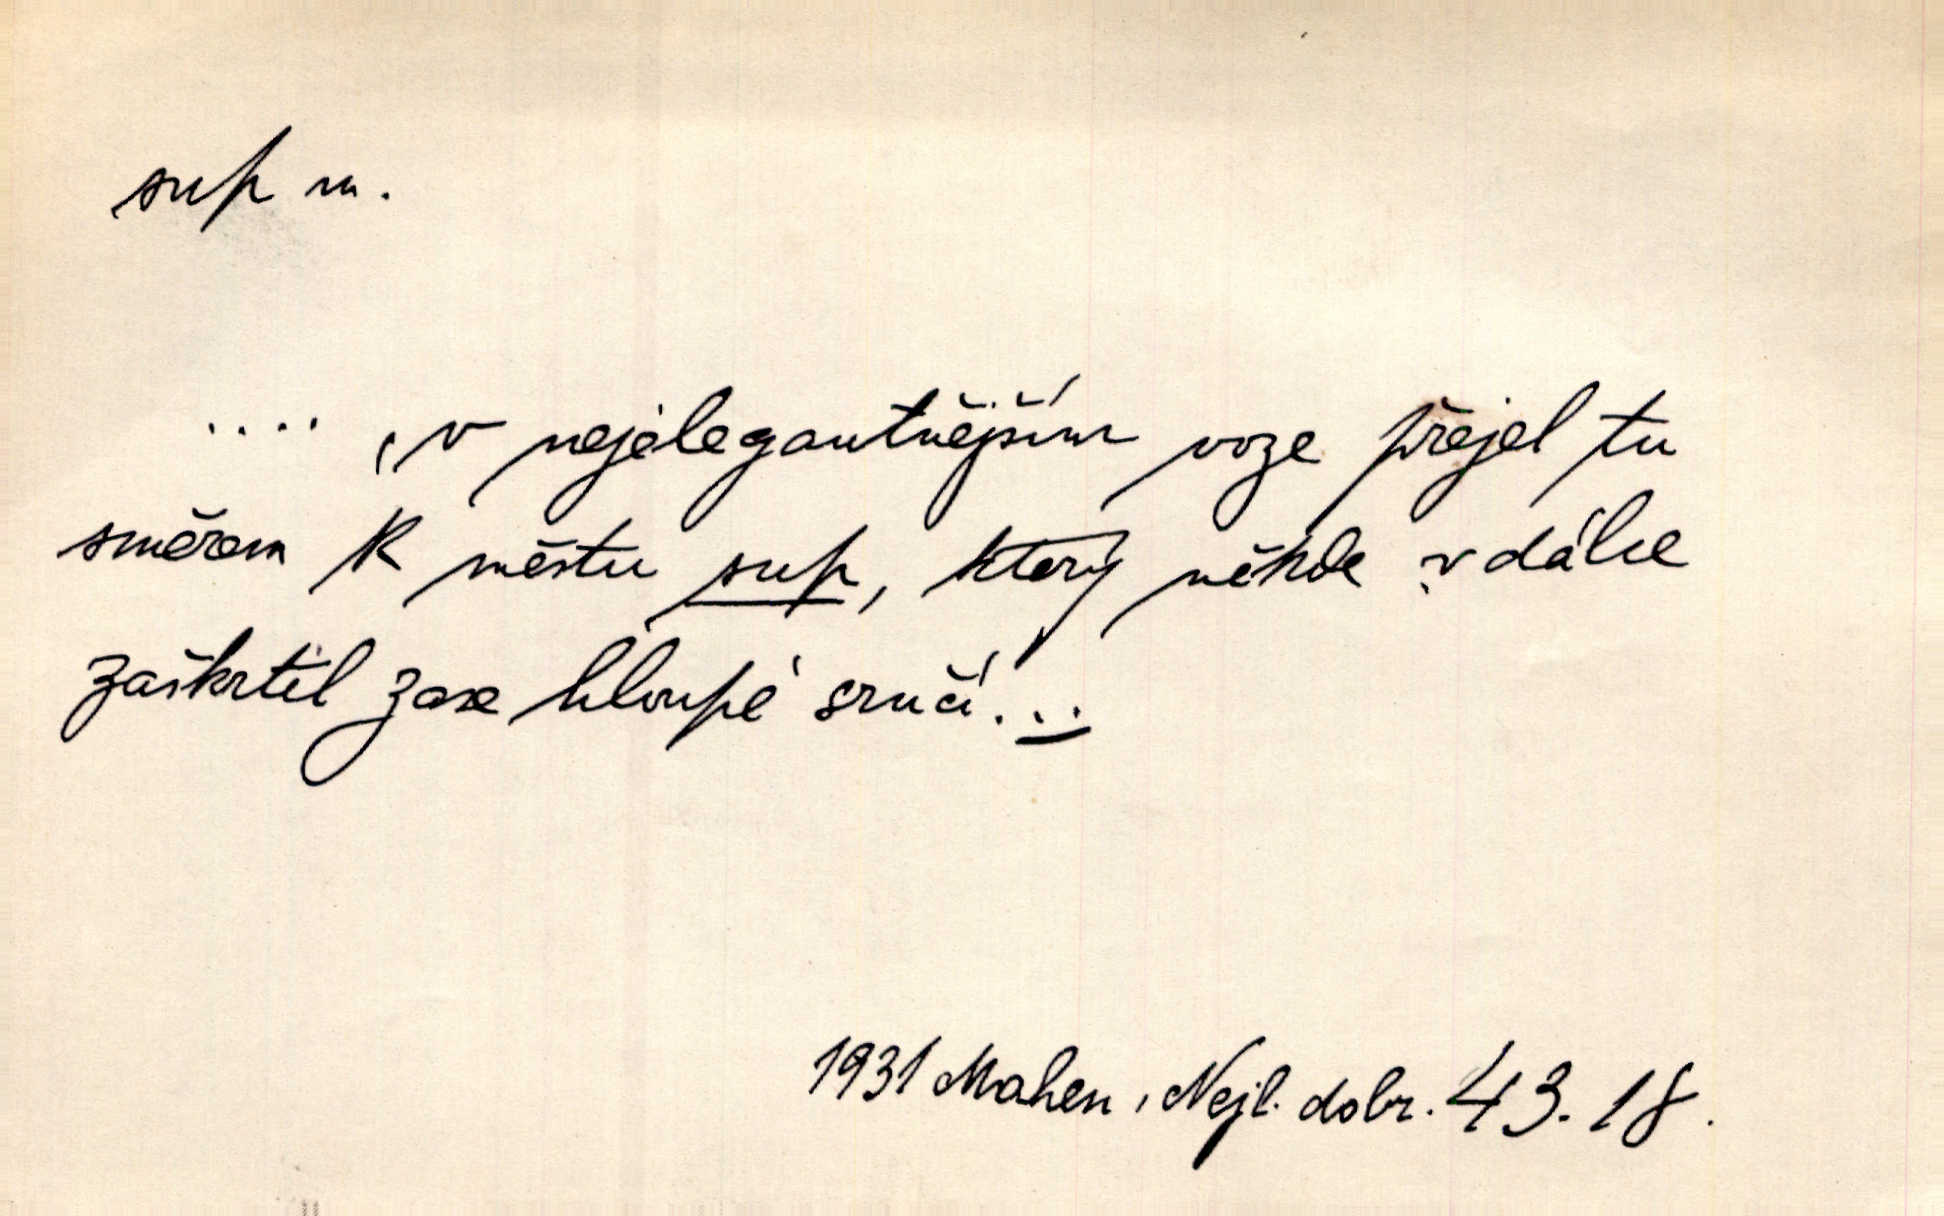 sup m.
...., v nejelegantnějším voze přejel tu
směrem k městu sup, který někde v dálce
zaškrtil zase hloupé srnčí...
1931 Mahen, Nejl. dobr. 43. 18.